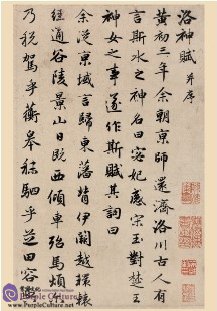 洛神賦 并序
黃初三年余朝京師還濟洛川古人有
言斯水之神名曰宓妃感宋玉對楚王
神女之事遂作斯賦其詞曰
余從京域言歸東藩背伊闕越轘轅
經通谷陵景山日既西傾車殆馬煩尔
乃稅駕乎蘅皋秣駟乎芝田容與
People Culture